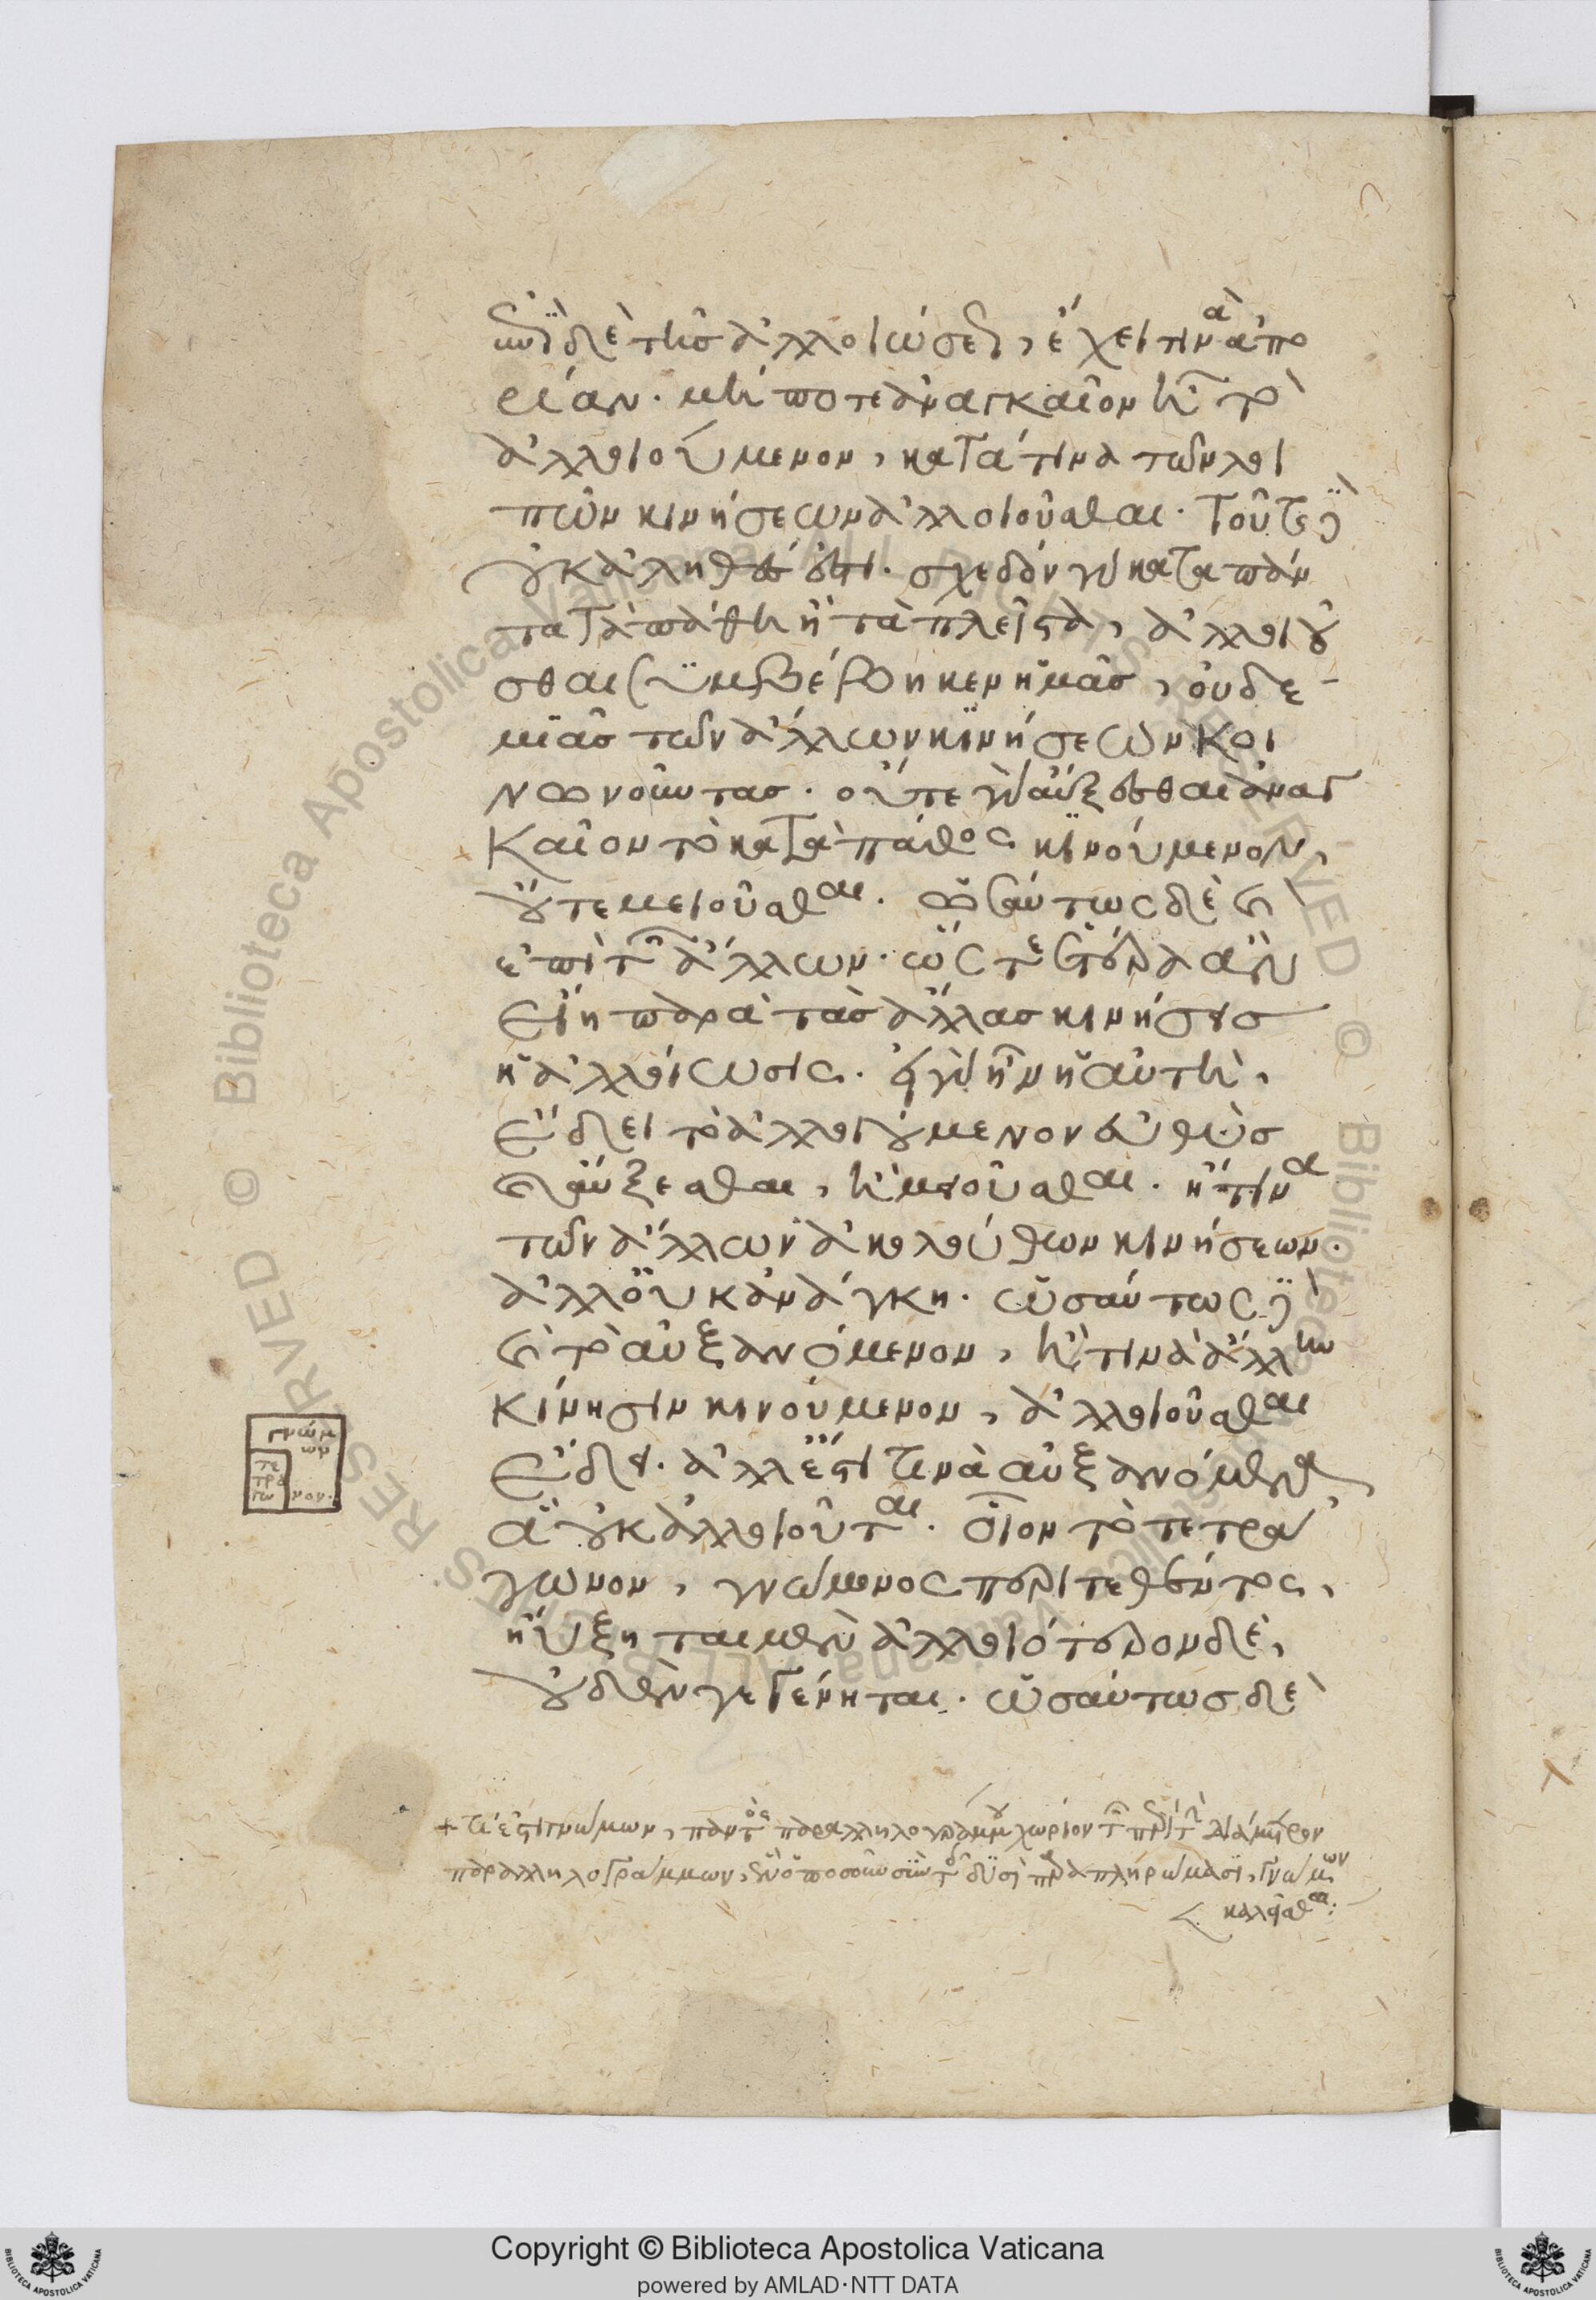 ἐπὶ δὲ τῆς ἀλλοιώσεως, ἔχει τινὰ ἀπο
ρίαν. μή ποτε ἀναγκαῖον ᾖ τὸ
ἀλλοιούμενον, κατά τινα τῶν λοι
πῶν κινήσεων ἀλλοιοῦσθαι. τοῦτο δὲ
οὐκ ἀληθές ἐστι. σχεδὸν γὰρ κατὰ πάν
τα τὰ πάθη ἢ τὰ πλεῖστα, ἀλλοιοῦ
σθαι συμβέβηκεν ἡμᾶς, οὐδε
μιᾶς τῶν ἄλλων κινήσεων κοι
νωνοῦντας. οὔτε γὰρ αὔξεσθαι ἀναγ
καῖον τὸ κατὰ πάθος κινούμενον,
οὔτε μειοῦσθαι. ὡσαύτως δὲ καὶ
ἐπὶ τῶν ἄλλων. ὥστε ἑτέρα ἂν
εἴη παρὰ τὰς ἄλλας κινήσεις
ἡ ἀλλοίωσις. εἰ γὰρ ἦν ἡ αὐτὴ,
ἔδει τὸ ἀλλοιούμενον εὐθὺς
καὶ αὔξεσθαι, ἢ μειοῦσθαι. ἤ τινα
τῶν ἄλλων ἀκολούθων κινήσεων.
ἀλλ' οὐκ ἀνάγκη. ὡσαύτως δὲ
καὶ τὸ αὐξανόμενον, ἤ τινα ἄλλην
κίνησιν κινούμενον, ἀλλοιοῦσθαι
ἔδει. ἀλλ' ἔστι τινὰ αὐξανόμενα
ἃ οὐκ ἀλλοιοῦται. οἷον τὸ τετρά
γωνον, γνώμονος περιτεθέντος,
ηὔξηται μὲν ἀλλοιότερον δὲ,
οὐδὲν γεγένηται. ὡσαύτως δὲ
γνώμ
ων
τε
τρά
γω νον.
+ τί ἐστι γνώμων, παντὸς παραλληλογράμμου χωρίον τῶν περὶ τὴν διάμετρον
παραλληλογράμμων, ἓν ὁποσονοῦν σὺν τοῖς δυσὶ παραπληρώμασι, γνώμων
καλείσθω:
Copyright © Biblioteca Apostolica Vaticana
powered by AMLAD·NTT DATA